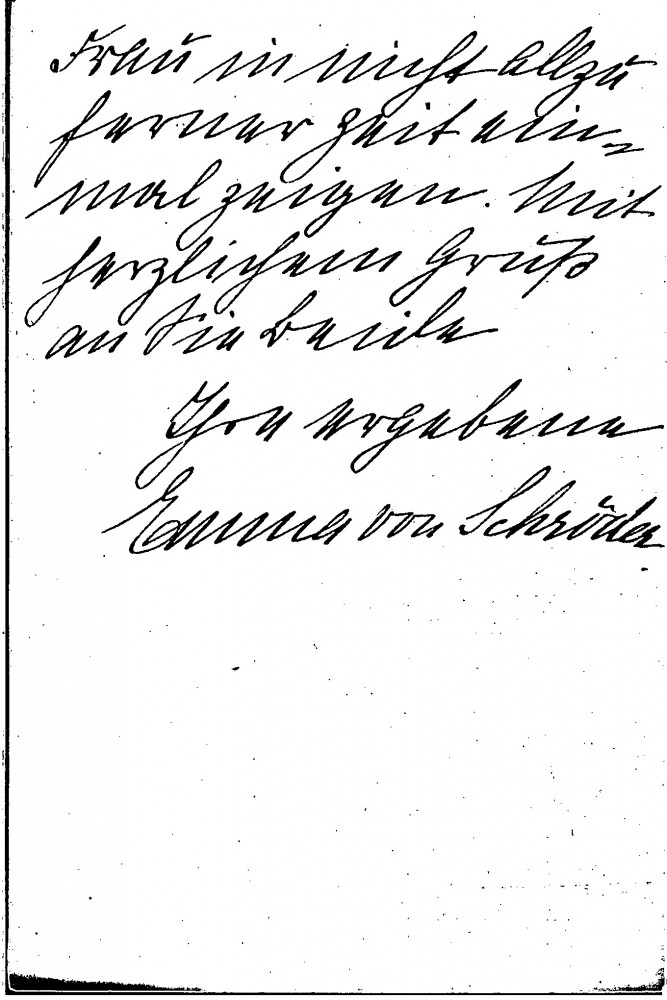 Frau in nicht allzu
ferner Zeit ein-
mal zeigen. Mit
herzlichem Gruß
an Sie beide
Ihre ergebene
Emma von Schröder